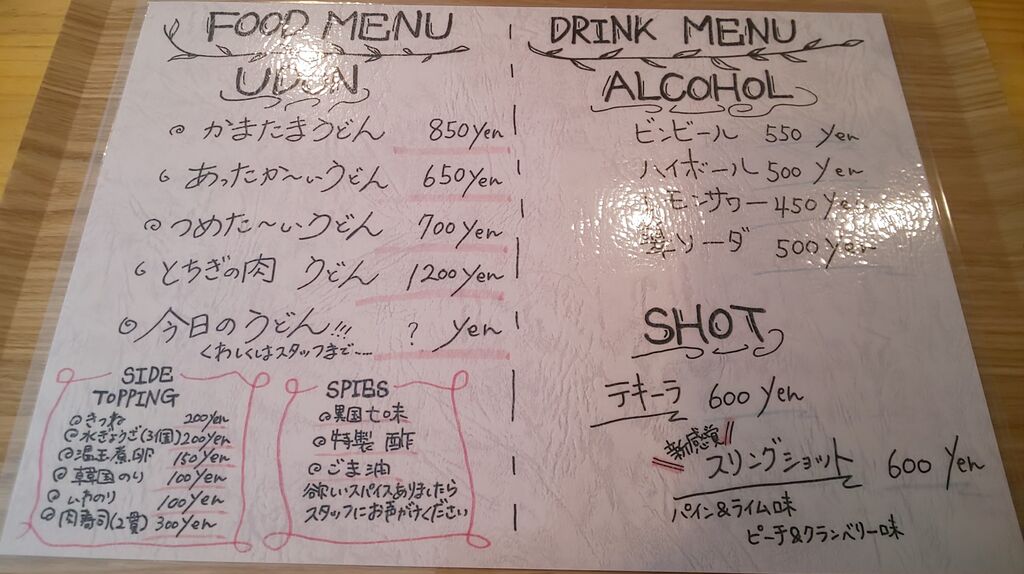 FOOD MENU
UDON
かまたまうどん 850yen
あったか〜いうどん 650yen
つめた〜いうどん 700yen
とちぎの肉 うどん 1200yen
今日のうどん!!! ? yen
くわしくはスタッフまで....
SIDE
TOPPING
きつね 200yen
水ぎょうざ(3個) 200yen
温玉煮卵 150yen
韓国のり 100yen
いわのり 100yen
肉寿司(2貫) 300yen
SPIES
異国七味
特製 酢
ごま油
欲しいスパイスありましたら
スタッフにお声がけください
DRINK MENU
ALCOHOL
ビンビール 550 yen
ハイボール 500 yen
レモンサワー 450 yen
ソーダ 500 yen
SHOT
テキーラ 600 yen
新感覚
スリングショット 600 yen
パイン&ライム味
ピーチ&クランベリー味